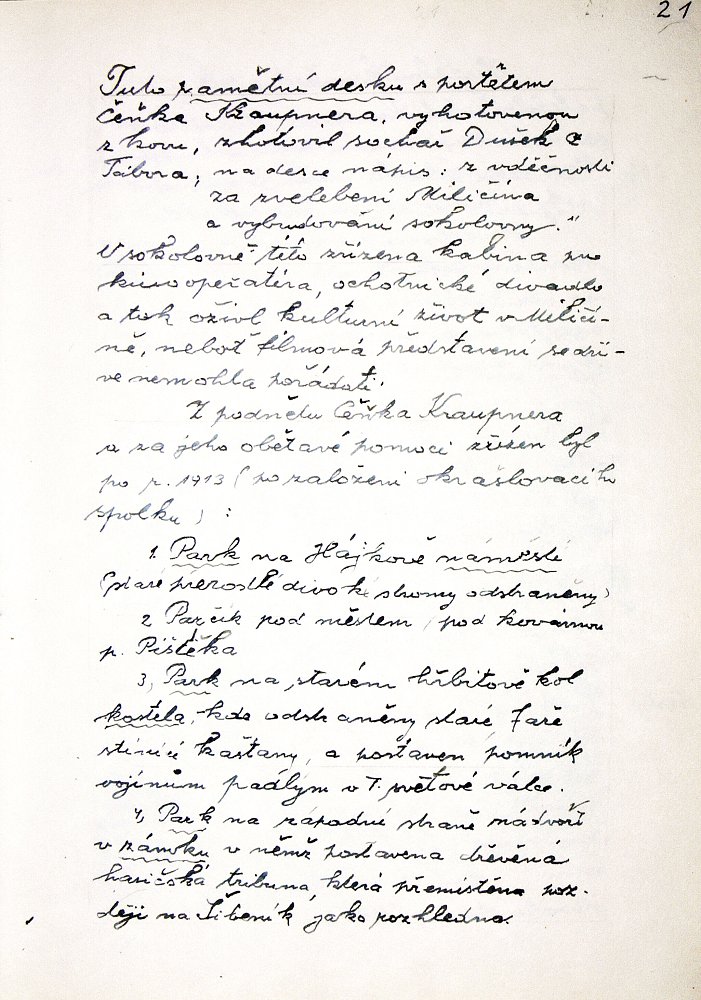 21
Tuto pamětní desku s portétem
Čeňka Kraupnera, vyhotovenou
z kovu, zhotovil sochař Dušek z
Tábora; na desce nápis: z vděčnosti
za zvelebení Miličína
a vybudování sokolovny."
V sokolovně této zřízena kabina pro
kinooperatéra, ochotnické divadlo
a tak oživl kulturní život v Miličí-
ně, neboť filmová představení se dří-
ve nemohla pořádati.
Z podnětu Čeňka Kraupnera
a za jeho obětavé pomoci zřízen byl
po r. 1913 (po založení okrašlovacího
spolku) :
1. Park na Hájkově náměstí
(staré přerostlé divoké stromy odstraněny)
2 Parčík pod městem, pod kovárnou
p. Pištěka
3, Park na starém hřbitově kol
kostela, kde odstraněny staré
stínící kaštany, a postaven pomník
vojínům padlým v I. světové válce.
4, Park na západní straně nádvoří
v zámku v němž postavena dřevěná
hasičská tribuna, která přemístěna poz-
ději na Šibeník jako rozhledna.